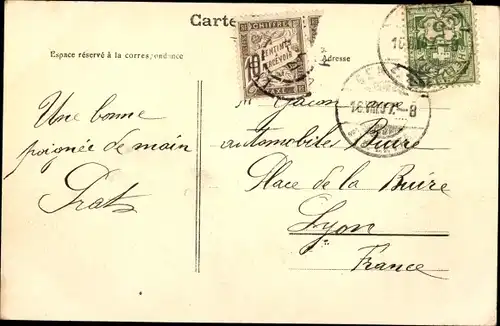 Carte
Espace réservé à la correspondance
Adresse
CHIFFRE
10
CENTIMES
A PERCEVOIR
TAXE
16 VIII 07 - 8
Une bonne
poignée de main
Prat
M Gacon aux
automobiles Buire
Place de la Buire
Lyon
France